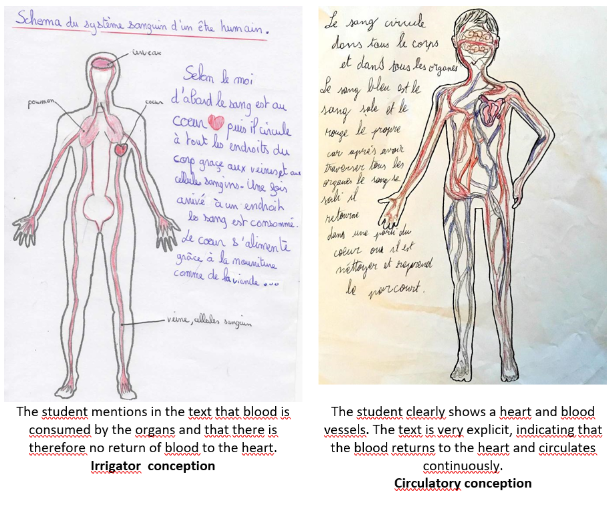 Schema du système sanguin d'un être humain.
cerveau
poumon
coeur
Selon le moi
d'abord le sang est au
coeur puis il circule
à tout les endroits du
corp grâce aux veines et au
cellules sanguins. Une fois
arrivé à un endroit
le sang est consommé.
Le coeur s'alimente
grâce à la nourriture
comme de la viande...
veine, cellules sanguin
The student mentions in the text that blood is
consumed by the organs and that there is
therefore no return of blood to the heart.
Irrigator conception
Le sang circule
dans tous le corps
et dans tous les organes
Le sang bleu est le
sang sale et le
rouge le propre
car après avoir
traverser tous les
organes le sang se
sali il
retourne
dans une partie du
coeur ou il est
nettoyer et reprend
le parcourt.
The student clearly shows a heart and blood
vessels. The text is very explicit, indicating that
the blood returns to the heart and circulates
continuously.
Circulatory conception